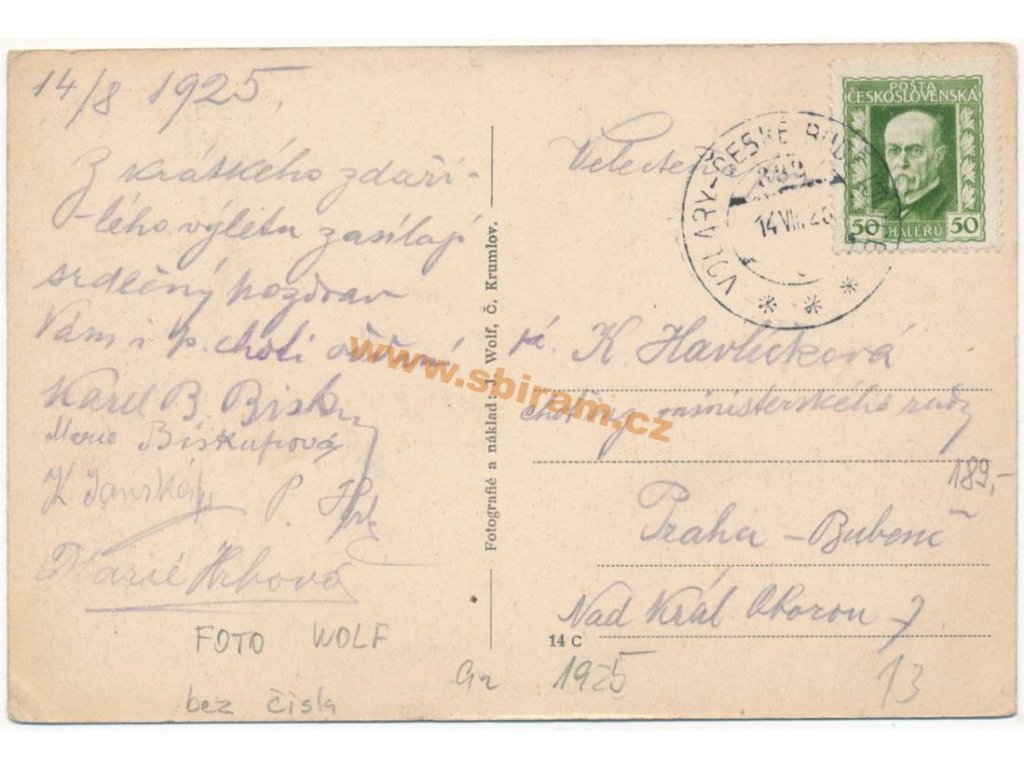 14/8 1925.
Z krátkého zdaři-
-lého výletu zasílají
srdečný pozdrav
Vám i p. choti
Karel B.
Marie Biskupová
K
P.
Marie Hrbová
FOTO WOLF
bez čísla
Fotografie a náklad: J. Wolf, Č. Krumlov.
POŠTA
ČESKOSLOVENSKÁ
50 HALÉŘŮ 50
VOLARY-ČESKÉ
14 VIII
K. Havlíčková
choť ministerského rady
189,-
Praha - Bubeneč
Nad Král. Oborou 7
14 C
1925
13
www.sbiram.cz